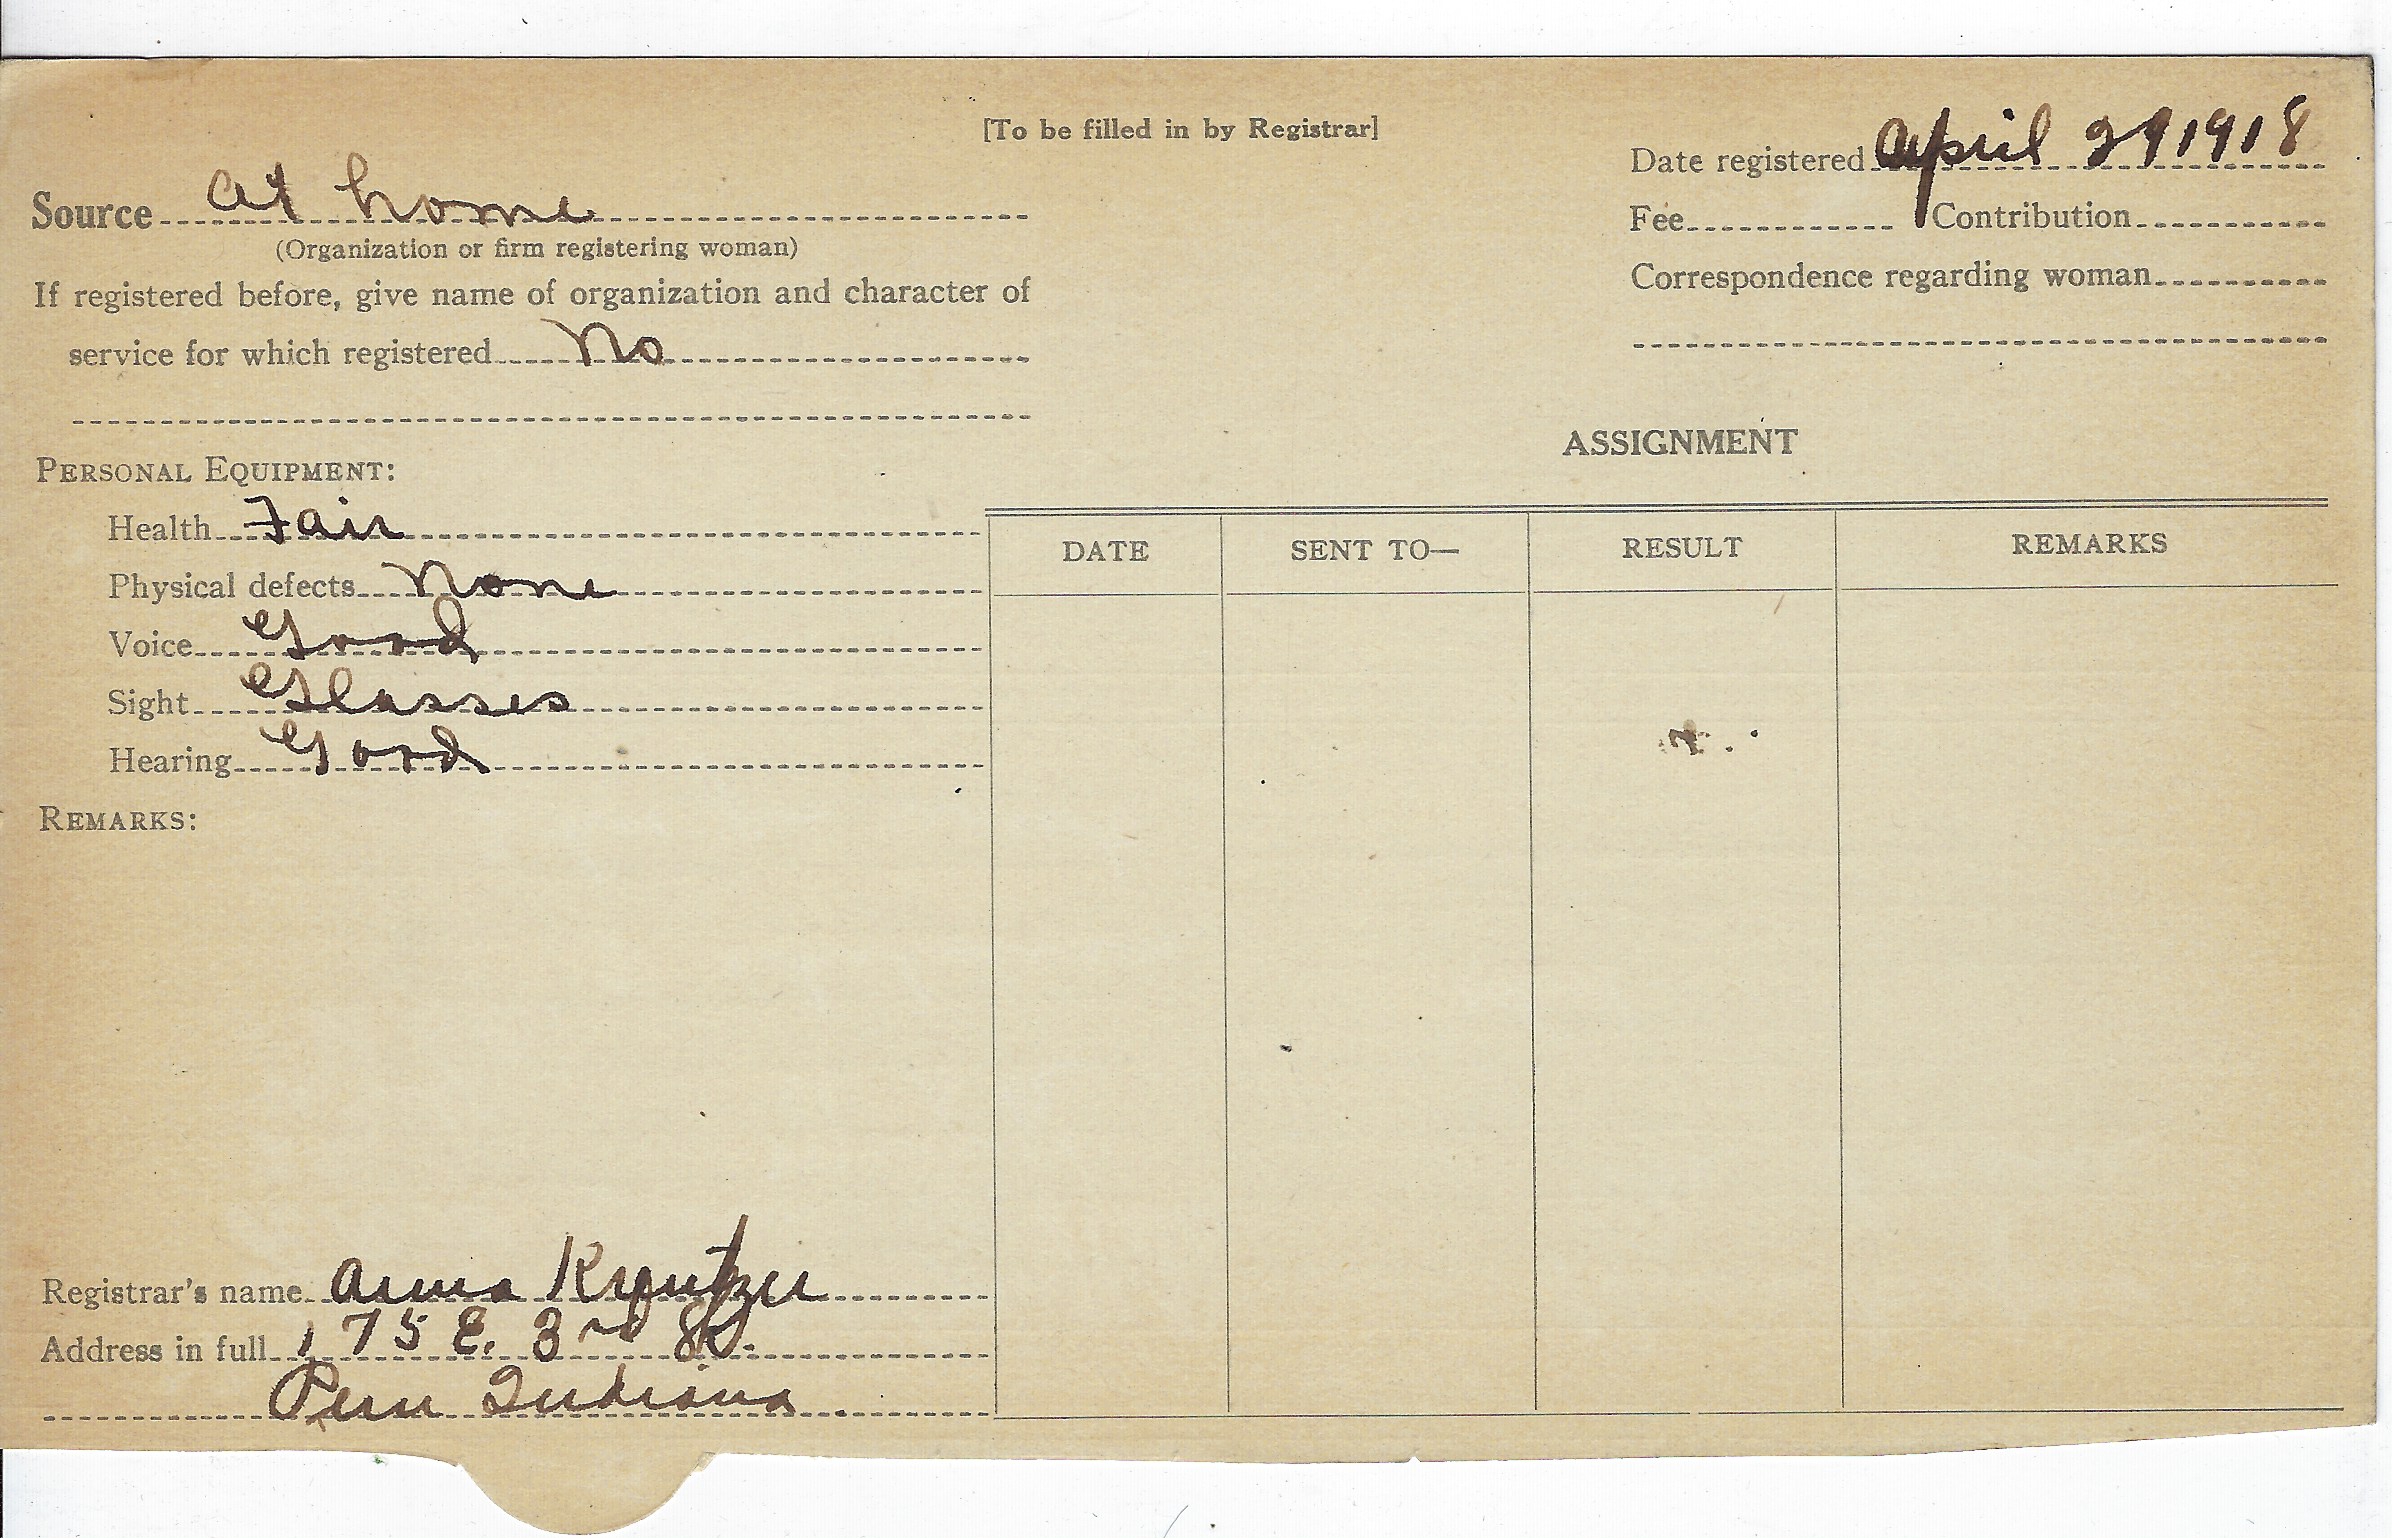 [To be filled in by Registrar]
Date registered April 29 1918
Source At home
(Organization or firm registering woman)
Fee Contribution
If registered before, give name of organization and character of
Correspondence regarding woman
service for which registered No
ASSIGNMENT
PERSONAL EQUIPMENT:
Health Fair
DATE SENT TO— RESULT REMARKS
Physical defects None
Voice Good
Sight Glasses
Hearing Good
REMARKS:
Registrar's name Anna
Address in full 175 E. 3rd St.
Peru Indiana